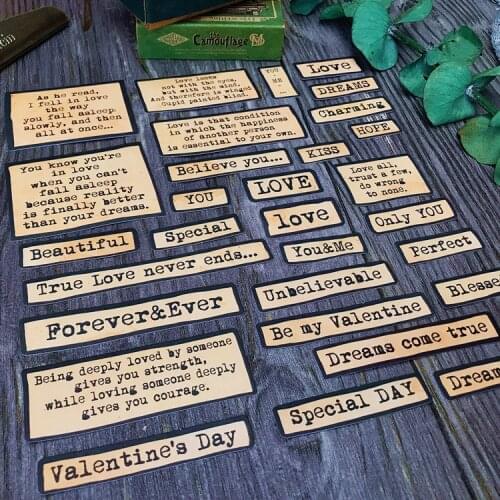 the
Camouflage
As he read,
I fell in love
the way
you fall asleep
slowly, and then
all at once...
Love looks
not with the eyes,
but with the mind,
And therefore is winged
Cupid painted blind.
YOU
&
ME
Love
DREAMS
Charming
HOPE
Love is that condition
in which the happiness
of another person
is essential to your own.
KISS
You know you're
in love
when you can't
fall asleep
because reality
is finally better
than your dreams.
Believe you...
YOU
LOVE
Love all,
trust a few,
do wrong
to none.
Beautiful
Special
love
Only YOU
True Love never ends...
You&Me
Perfect
Forever&Ever
Unbelievable
Blesse
Being deeply loved by someone
gives you strength,
while loving someone deeply
gives you courage.
Be my Valentine
Dreams come true
Valentine's Day
Special DAY
Dream